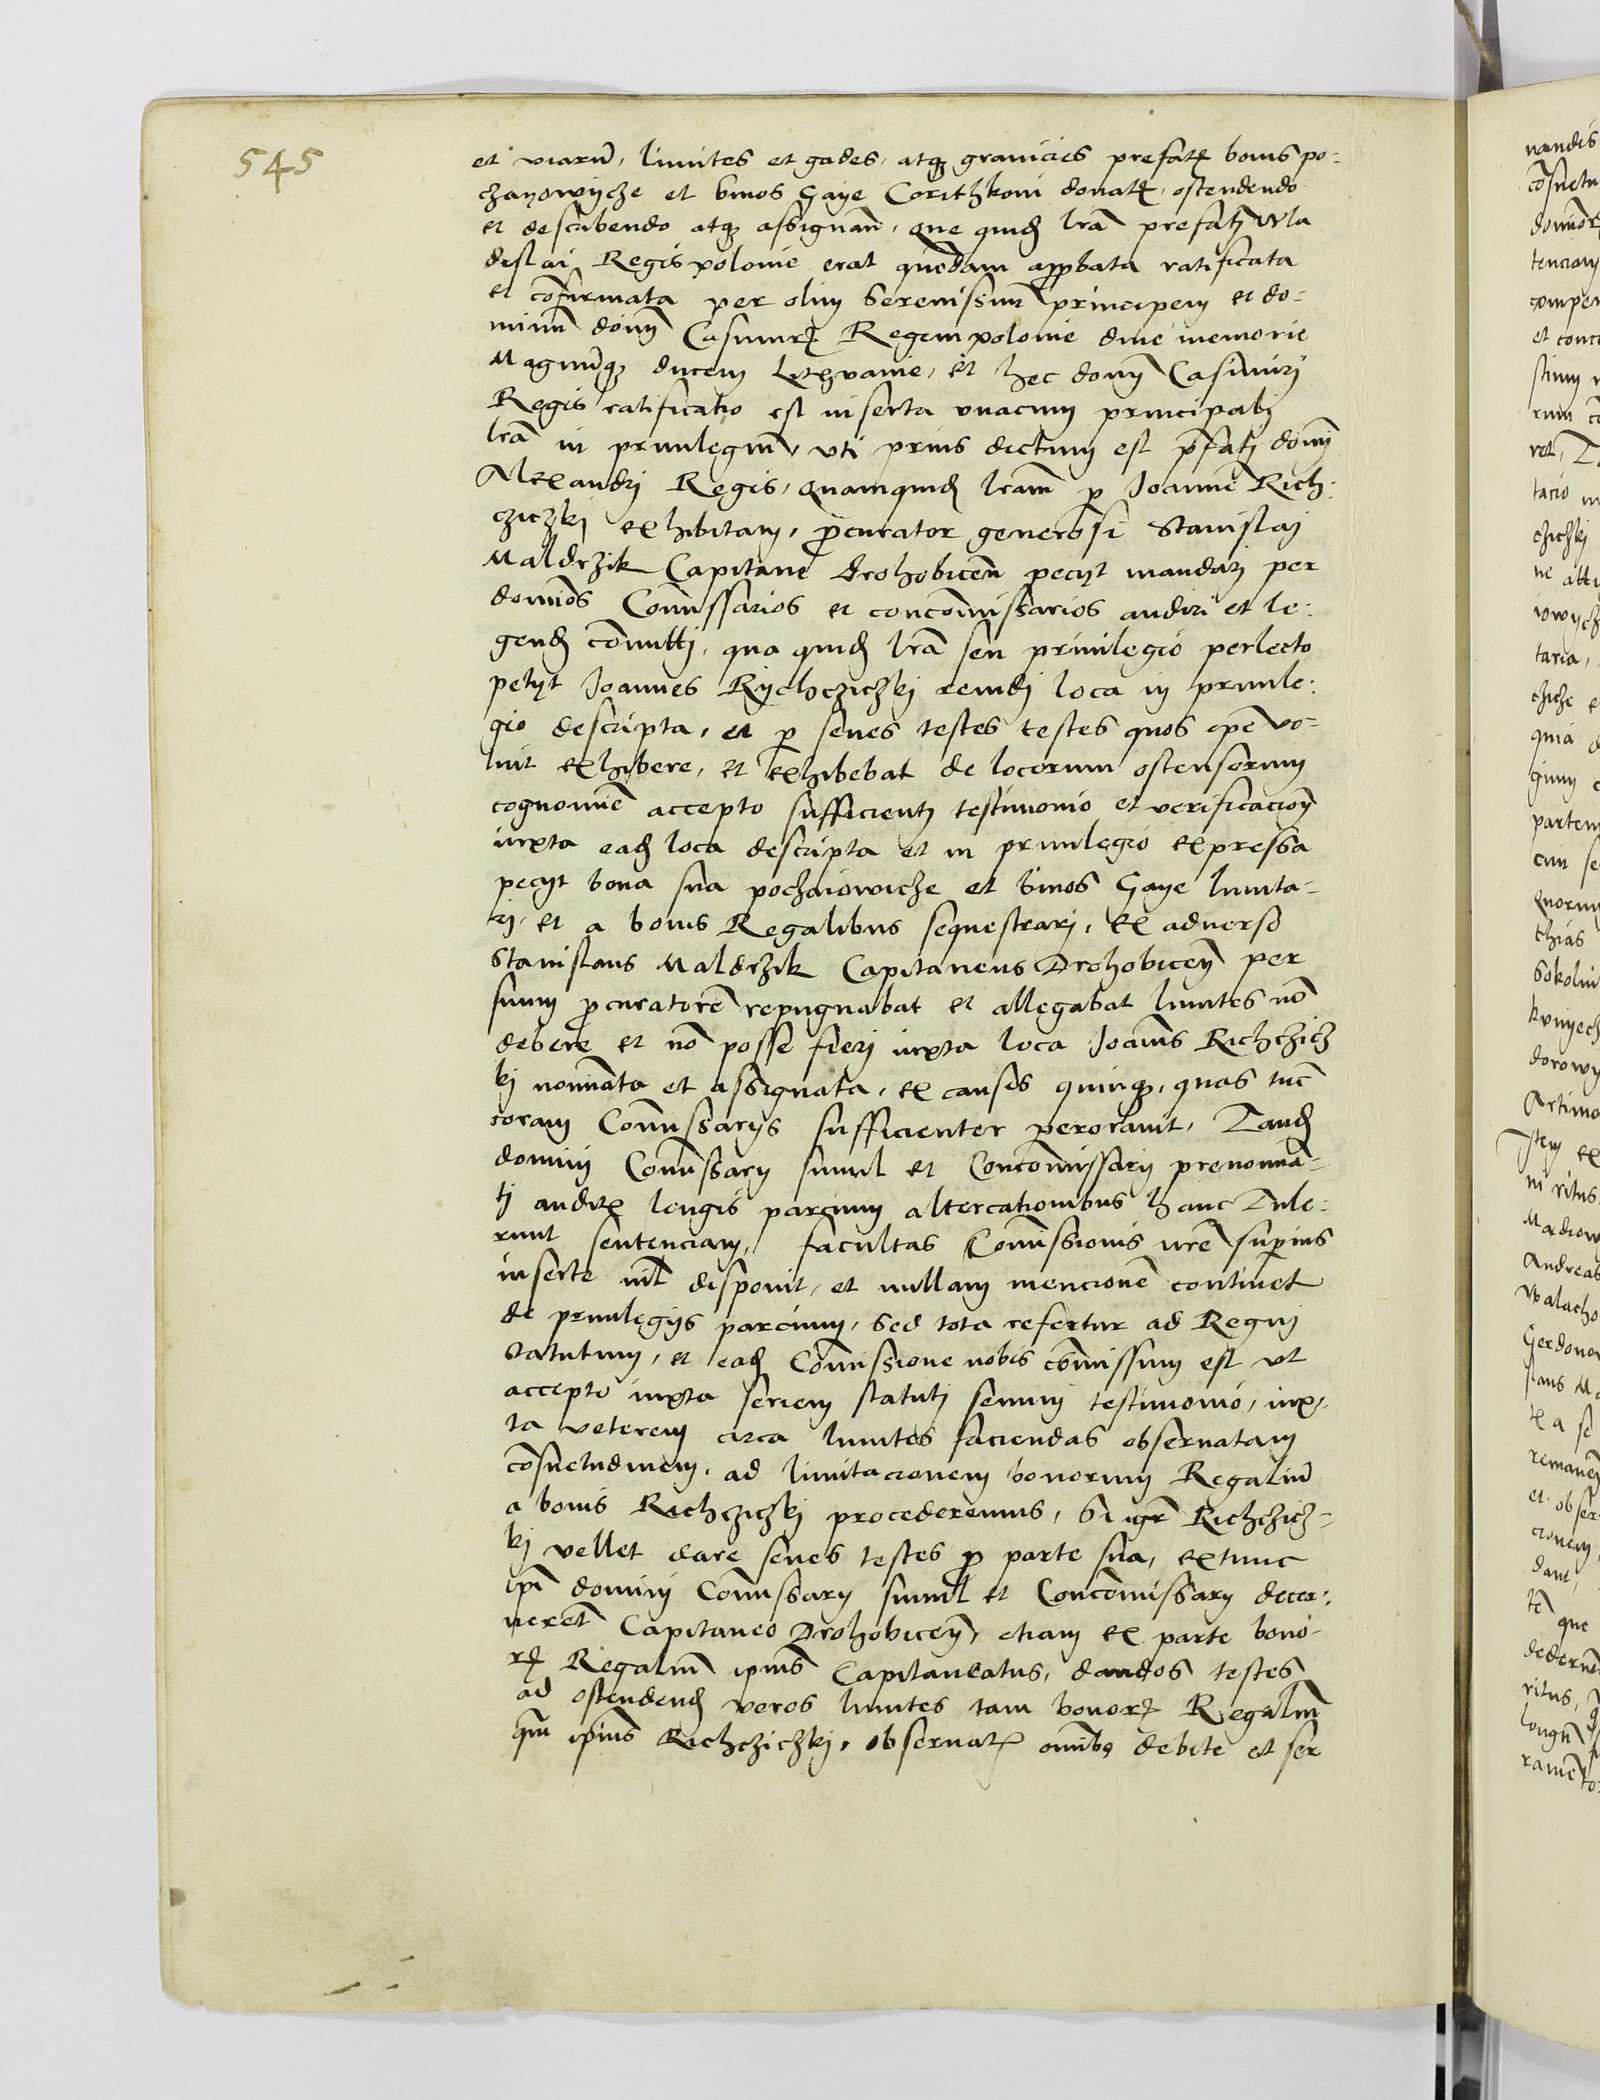 545
et viarũ, limites et gades, atq₃ granicies prefatꝝ bonis po-
czayowycze et bmos Gaye Corithkoni donatꝝ, ostendendo
et describendo atq₃ assignan̄, que quid̨ lrã prefatj Wla
dislai Regis polonie erat quedam app̃bata ratificata
et cõfirmata per olim Serenissim̃ principem et do-
minũ dõnỹ Casimirꝝ Regem polonie diue memorie
Magnũq₃ ducem Lithvanie, et hec donỹ Casimiri
Regis ratificatio est inserta vnacum principalj
lrã in priuilegiũ, vti prius dictum est p̃fatj dõnj
Alexandrj Regis, quamquid̨ lram̃ p Joannẽ Rich:
cziczkj exhibitam, p̃curator generosi Stanislaj
Maldrzik Capitanei Drohobiceñ pecyt mandarj per
dominõs Com̃issarios et concom̃issarios audiri et le:
gend̨ cõmittj, qua quid̨ lrã seu priuilegio perlecto
petyt Joannes Rychcziczkj reuidj loca in priuile:
gio descripta, et p senes testes testes quos ipẽ vo-
luit exhibere, et exhibebat de locorum ostensorum
cognominẽ accepto sufficientj testimonio et verificacioñ
iuxta ead̨ loca descripta et in priuilegio expressa
pecyt bona sua poczaiowicze et bmos Gaye limita-
rj, et a bonis Regalibus sequestrarj, Ex aduerso
Stanislaus Maldrzik Capitaneus Drohobiceñ per
suum p̃curatorẽ repugnabat et allegabat limites nõ
debere et nõ posse fierj iuxta loca Joanñis Richczicz
kj nominata et assignata, ex causis quinq₃, quas tũc
coram Com̃issarijs sufficienter perorauit, Tand̨
dominj Com̃issarij simul et Concom̃issarij prenomina-
tj auditꝭ longis parcium altercationibus hanc Tule:
runt sentenciam, facultas Com̃issionis nr̃e superius
inserte nil disponit, et nullam mencionẽ continet
de priuilegijs parcium, Sed tota refertur ad Regnj
Statutum, et ead̨ Com̃issione nobis cõmissum est vt
accepto iuxta seriem statutj senum testimonio, iux-
ta veterem circa limites faciendas obseruatam
cõsuetudinem, ad limitacionem bonorum Regaliũ
a bonis Richcziczkj procederemus, Si igr̃ Richczicz-
kj vellet dare senes testes p̃ parte sua, extunc
ipĩ dominj Com̃issarij simul et Concom̃issarij decer:
nerẽt Capitaneo Drohobiceñ, etiam ex parte bono-
rꝝ Regaliũ ipiũs Capitaneatus, dandos testes
ad ostendend̨ veros limites tam bonorꝝ Regaliũ
qm̃ ipiũs Richcziczkj, obseruatꝭ omĩbꝰ debite et ser